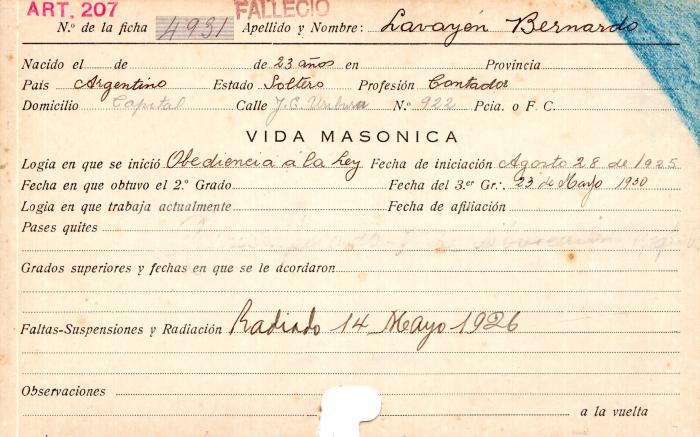 ART. 207 FALLECIO
N.º de la ficha 4931 Apellido y Nombre: Lavayén Bernardo
Nacido el de de 23 años en Provincia
País Argentino Estado Soltero Profesión Contador
Domicilio Capital Calle J. E. Uriburu N.º 922 Pcia. o F. C.
VIDA MASONICA
Logia en que se inició Obediencia á la ley Fecha de iniciación Agosto 28 de 1925
Fecha en que obtuvo el 2.º Grado Fecha del 3.er Gr∴ 23 de Mayo 1930
Logia en que trabaja actualmente Fecha de afiliación
Pases quites
Grados superiores y fechas en que se le acordaron
Faltas-Suspensiones y Radiación Radiado 14 Mayo 1926
Observaciones
a la vuelta